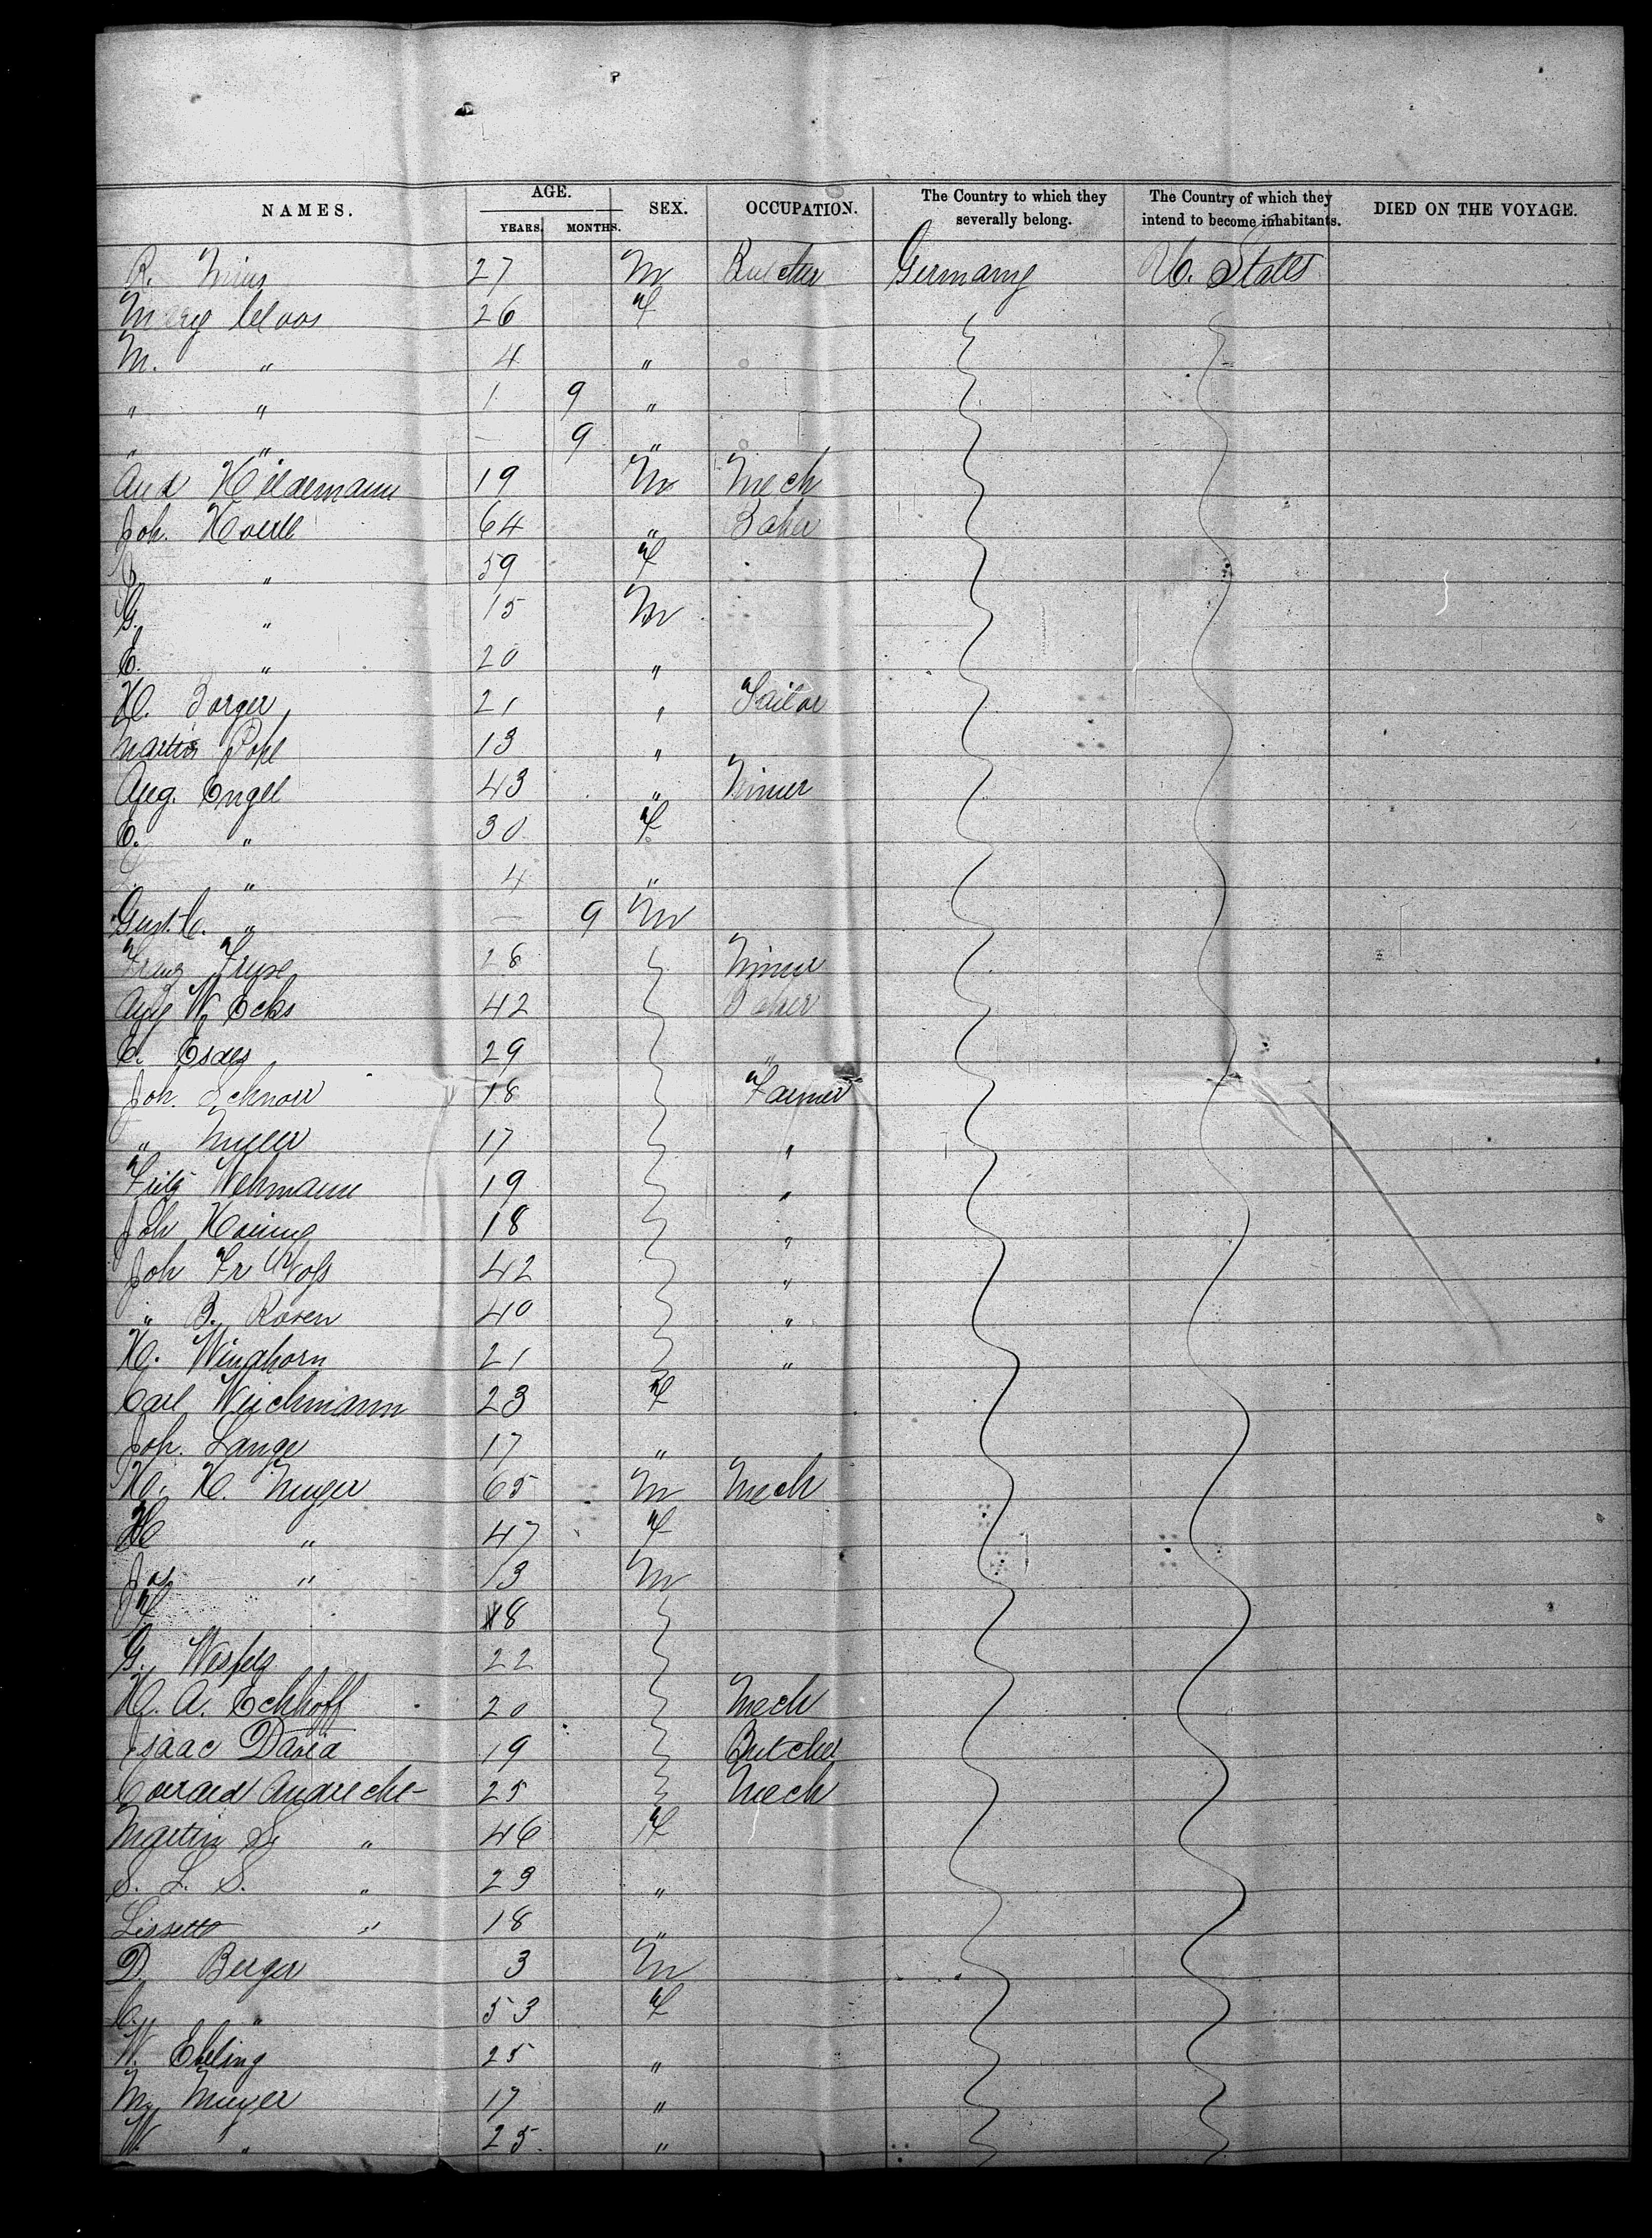 NAMES. AGE. SEX. OCCUPATION. The Country to which they severally belong. The Country of which they intend to become inhabitants. DIED ON THE VOYAGE.
YEARS. MONTHS.
R. 27 M Butcher Germany U. States
Mary Claas 26 F
M. " 4 "
" " 1 9 "
" " — 9 "
Aud Hildemann 19 M Mech
Joh. 64 " Baker
" 59 F
G. " 15 M
E. " 20 "
H. Borger 21 " Sailor
Martin Pohl 13 "
Aug. Engel 43 " Miner
E. " 30 F
" 4 "
Gust. C. " — 9 M
Franz 28 Miner
Aug W Ecks 42 Baker
E. 29 "
Joh. Schnorr 18 Farmer
" 17 "
Fritz Wehmann 19 "
Joh 18 "
Joh Fr Voß 42 "
" B. Rosen 40 "
H. Winghorn 21 "
Carl Weichmann 23 F
Joh. Lange 17 "
H. H. Meyer 65 M Mech
H " 47 F
Jos " 13 M
F 8
G. 22
H. A. Eckhoff 20 Mech
Isaac David 19 Butcher
Conrad 25 Mech
S. " 46 F
S. L. S. " 29 "
Lissette " 18 "
D. Berger 3 M
C. " 53 F
W. Ebeling 25 "
M. Meyer 17 "
W. " 25. "